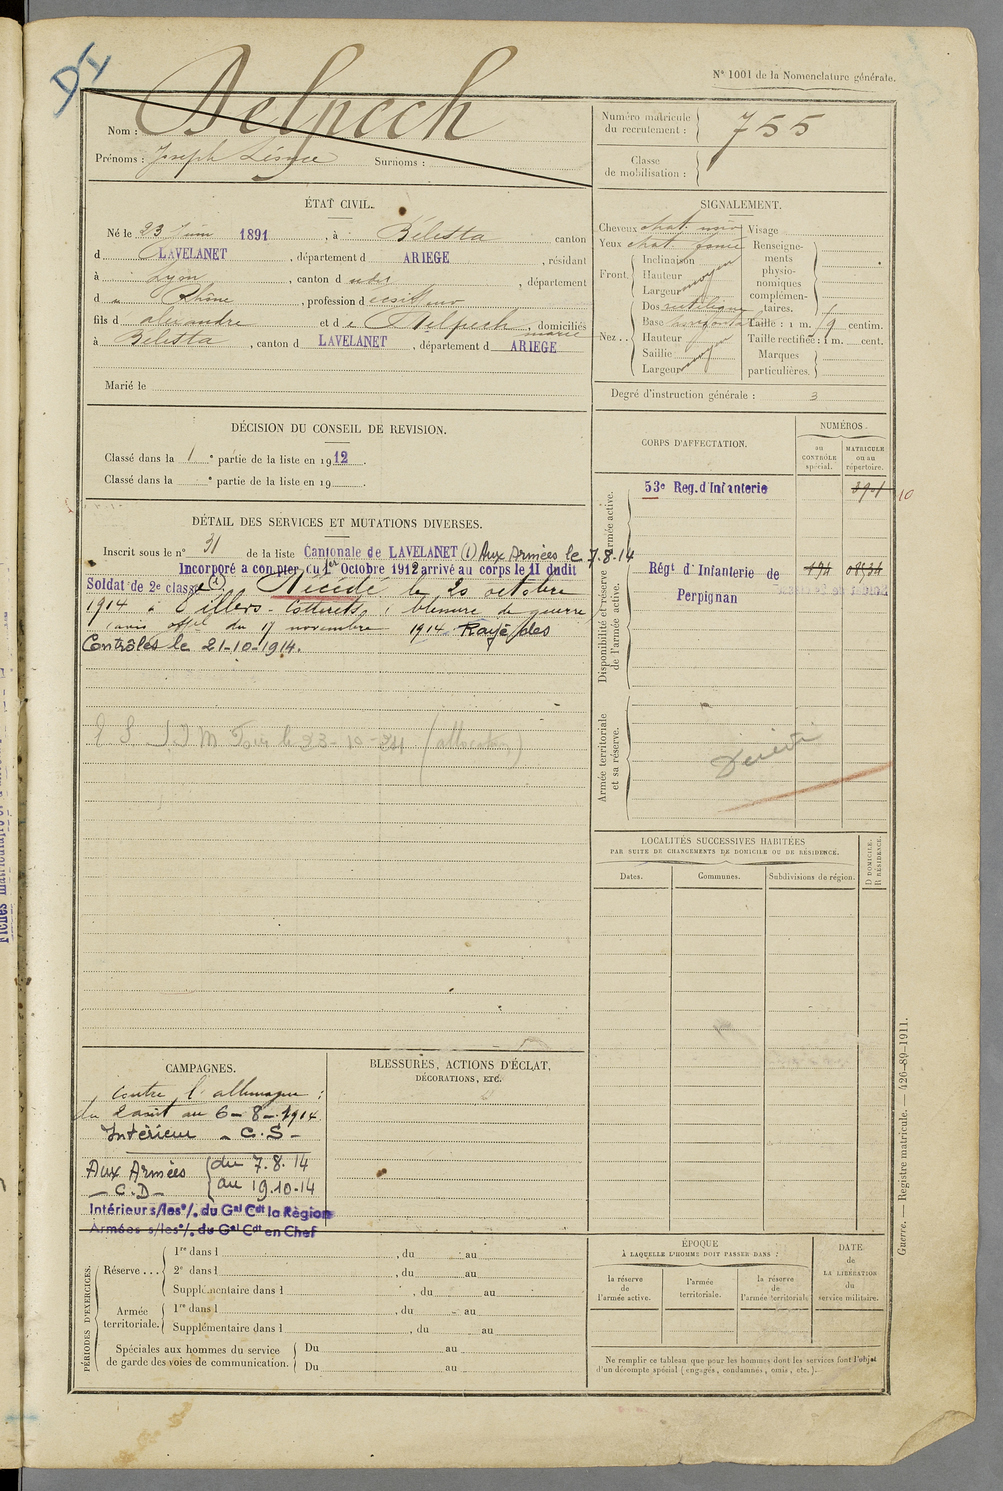 DI
N° 1001 de la Nomenclature générale.
Nom : Delpech
Prénoms : Joseph Surnoms :
Numéro matricule du recrutement : 755
Classe de mobilisation :
ÉTAT CIVIL.
Né le 23 Juin 1891, à Bélesta canton
d LAVELANET, département d ARIEGE, résidant
à Lyon, canton d udit, département
d u Rhône, profession d
fils d alexandre et d e Delpech marie, domiciliés
à Bélesta, canton d LAVELANET, département d ARIEGE
Marié le
SIGNALEMENT.
Cheveux chat. noir Visage
Yeux chat. Renseignements physionomiques complémentaires.
Front. Inclinaison
Hauteur
Largeur moyen
Nez .. Dos rectiligne
Base horizontale Taille : 1 m. 59 centim.
Hauteur Taille rectifiée : 1 m. cent.
Saillie Marques particulières.
Largeur moyen
Degré d'instruction générale : 3
DÉCISION DU CONSEIL DE REVISION.
Classé dans la 1e partie de la liste en 1912.
Classé dans la e partie de la liste en 19
CORPS D'AFFECTATION.
NUMÉROS.
au CONTRÔLE spécial.
MATRICULE ou au répertoire.
Armée active.
53e Reg. d'Infanterie 10
Disponibilité et réserve de l'armée active.
Régt d'Infanterie de Perpignan
Armée territoriale et sa réserve.
DÉTAIL DES SERVICES ET MUTATIONS DIVERSES.
Inscrit sous le n° 31 de la liste Cantonale de LAVELANET (1) Aux Armées le 7.8.14
Incorporé à compter du 1er Octobre 1912 arrivé au corps le 11 dudit
Soldat de 2e classe (1) Décédé le 20 octobre
1914 à Villers-Cotterets, blessure de guerre
(avis offel du 17 novembre 1914. Rayé des
Contrôles le 21-10-1914.
23-10-24 (allocation)
LOCALITÉS SUCCESSIVES HABITÉES
PAR SUITE DE CHANGEMENTS DE DOMICILE OU DE RÉSIDENCE.
Dates. Communes. Subdivisions de région. D DOMICILE. R RÉSIDENCE.
CAMPAGNES.
Contre l'allemagne :
du 2 août au 6-8-1914
Intérieur - C.S -
Aux Armées du 7.8.14
- C.D - au 19.10.14
Intérieur s/les°/. du Gal Cdt la Région
Armées s/les°/. du Gal Cdt en Chef
BLESSURES, ACTIONS D'ÉCLAT,
DÉCORATIONS, ETC.
PÉRIODES D'EXERCICES.
Réserve ... 1re dans l , du au
2e dans l , du au
Supplémentaire dans l , du au
Armée territoriale. 1re dans l , du au
Supplémentaire dans l , du au
Spéciales aux hommes du service de garde des voies de communication. Du au
Du au
ÉPOQUE
À LAQUELLE L'HOMME DOIT PASSER DANS :
la réserve de l'armée active.
l'armée territoriale.
la réserve de l'armée territoriale
DATE de LA LIBÉRATION du service militaire.
Ne remplir ce tableau que pour les hommes dont les services font l'objet
d'un décompte spécial (engagés, condamnés, omis, etc.).
Guerre. — Registre matricule. — 426-89-1911.